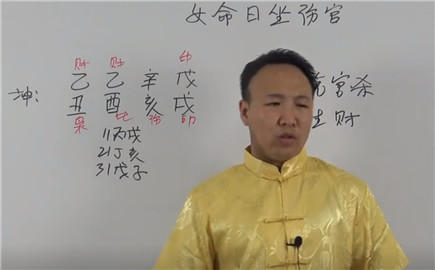 女命日坐伤官
财 财 印
坤: 乙 乙 辛 戊
丑 酉 亥 戌
枭 比 伤 印
11丙戌
21丁亥
31戊子
官杀
生财